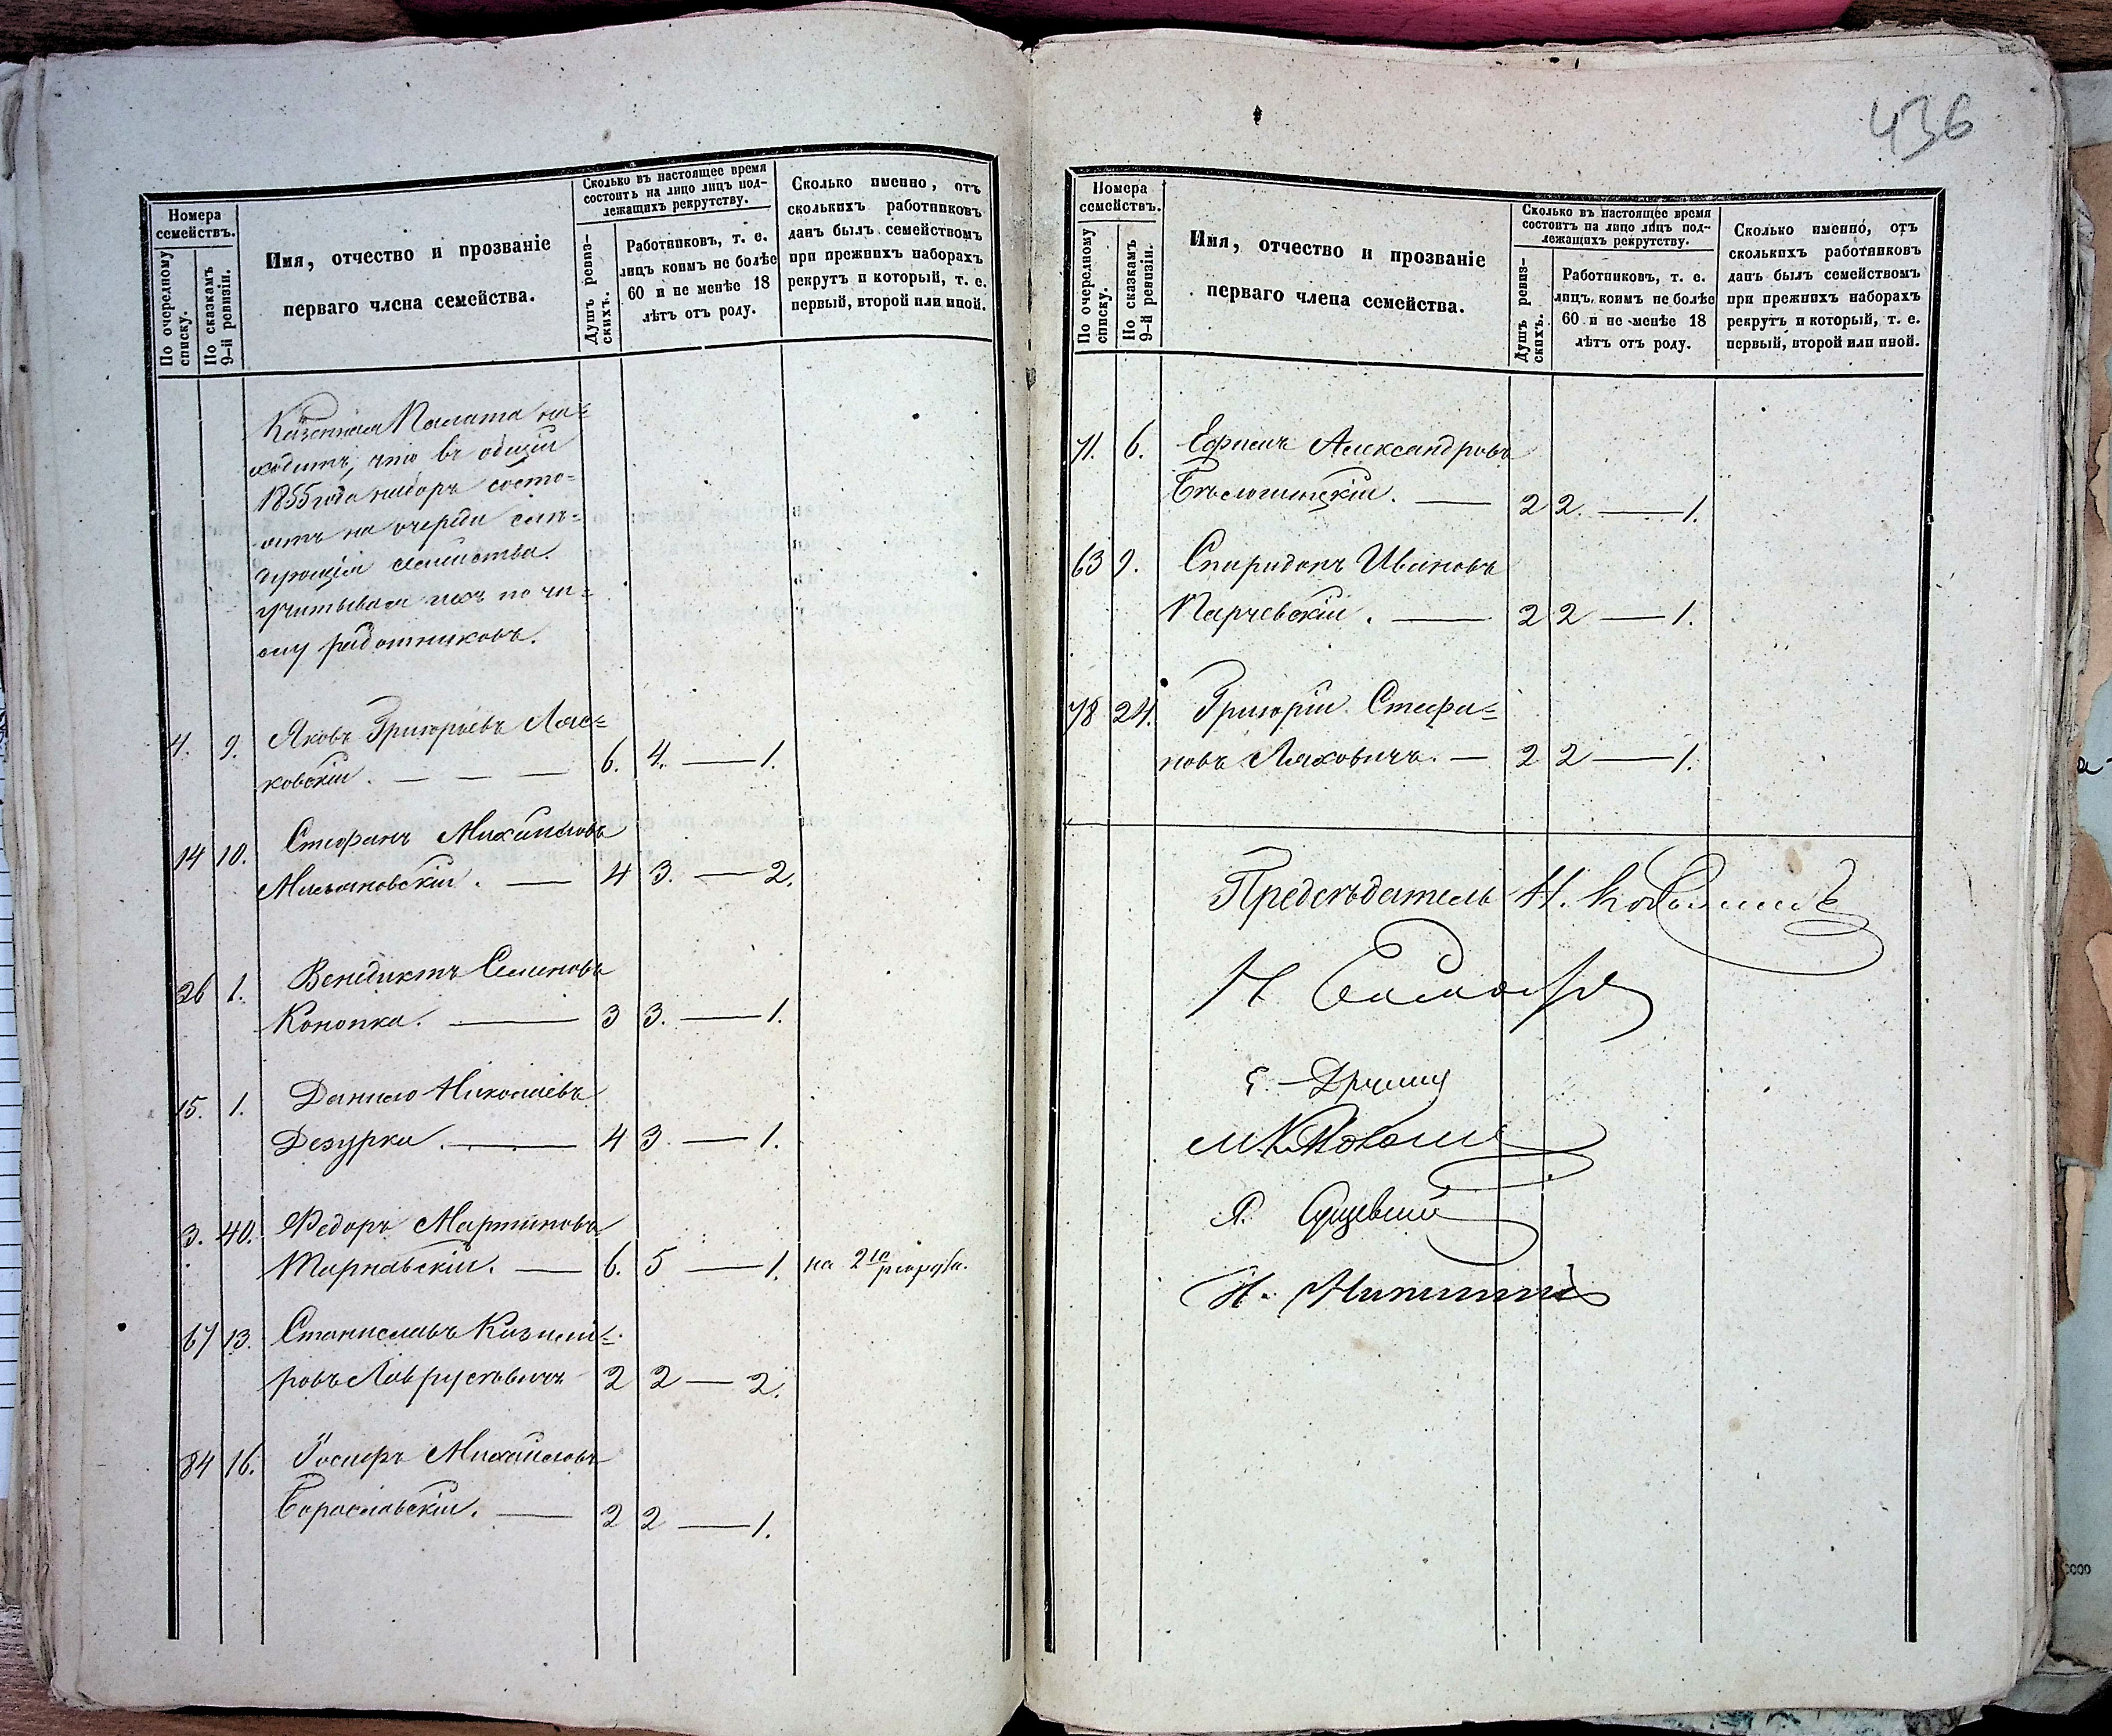 436
Номера семействъ.
По очередному списку.
По сказкамъ 9-й ревизіи.
Имя, отчество и прозваніе
перваго члена семейства.
Сколько въ настоящее время
состоитъ на лицо лицъ под-
лежащихъ рекрутству.
Душъ ревиз-
скихъ.
Работниковъ, т. е.
лицъ коимъ не болѣе
60 и не менѣе 18
лѣтъ отъ роду.
Сколько именно, отъ
сколькихъ работниковъ
данъ былъ семействомъ
при прежнихъ наборахъ
рекрутъ и который, т. е.
первый, второй или иной.
Казенная Палата на=
ходитъ, что въ общій
1855 года наборъ состо=
итъ на очереди слѣ=
дующія семейства
учитывая ихъ по чи=
слу работниковъ.
4. 9. Яковъ Григорьевъ Ляс=
ковскій. — — — 6. 4. — 1.
14 10. Стефанъ Михайловъ
Мисьяновскій. — 4 3. — 2.
26 1. Венедиктъ Семеновъ
Конопка. — 3 3. — 1.
15. 1. Данило Николаевъ
Дезурка. — 4 3 — 1.
3. 40. Федоръ Мартиновъ
Тарнавскій. — 6. 5 — 1. на 2го рекрута.
67 13. Станиславъ Казими=
ровъ Лаврусевичъ 2 2 — 2.
84 16. Іосифъ Михайловъ
Борославскій. — 2 2 — 1.
Номера
семействъ.
По очередному
списку.
По сказкамъ
9-й ревизіи.
Имя, отчество и прозваніе
перваго члена семейства.
Сколько въ настоящее время
состоитъ на лицо лицъ под-
лежащихъ рекрутству.
Душъ ревиз-
скихъ.
Работниковъ, т. е.
лицъ, коимъ не болѣе
60 и не менѣе 18
лѣтъ отъ роду.
Сколько именно, отъ
сколькихъ работниковъ
данъ былъ семействомъ
при прежнихъ наборахъ
рекрутъ и который, т. е.
первый, второй или иной.
71. 6. Ефимъ Александровъ
2 2. — 1.
63 9. Спиридонъ Ивановъ
Парчевскій. — 2 2 — 1.
78 24. Григорій Стефа=
новъ Ляховичъ. — 2 2 — 1.
Предсѣдатель Н.
Н.
М.